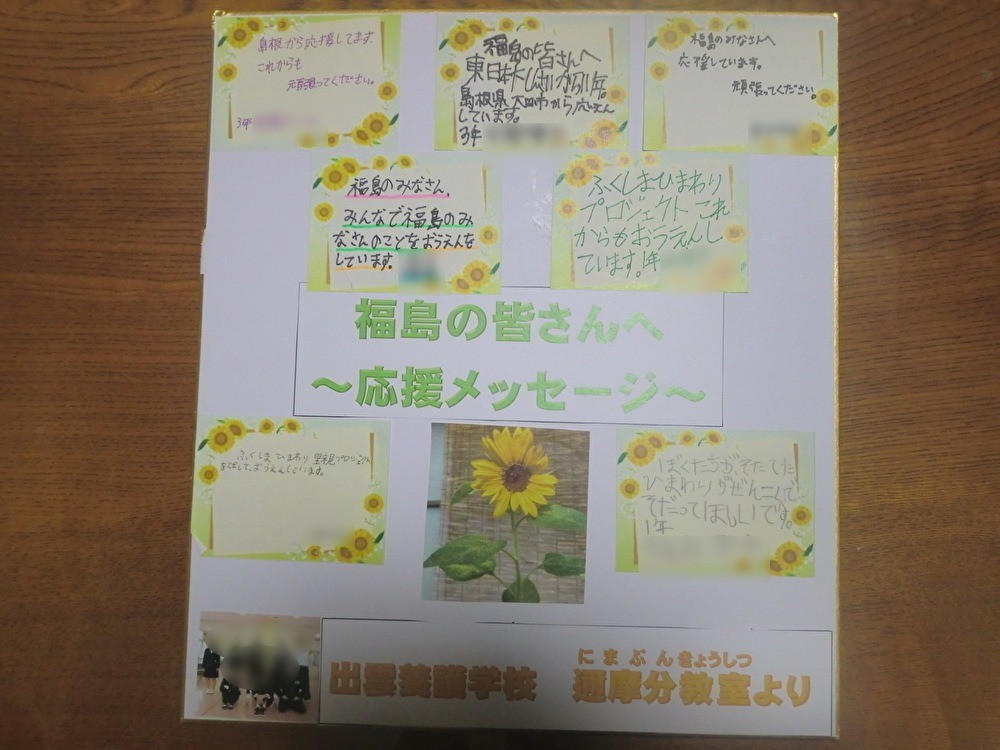 島根から応援してます。
これからも
頑張ってください。
3年
福島の皆さんへ
東日本大しんさいから11年。
島根県大田市から応えん
しています。
3年
福島のみなさんへ
応援しています。
頑張ってください。
福島のみなさん、
みんなで福島のみ
なさんのことをおうえんを
しています。
ふくしまひまわり
プロジェクトこれ
からもおうえんし
ています。1年
福島の皆さんへ
～応援メッセージ～
ふくしまひまわり里親プロジェクト
おうえんしています。
ぼくたちが、そだてた
ひまわりがぜんこくで
そだってほしいです。
1年
にまぶんきょうしつ
出雲養護学校 邇摩分教室より